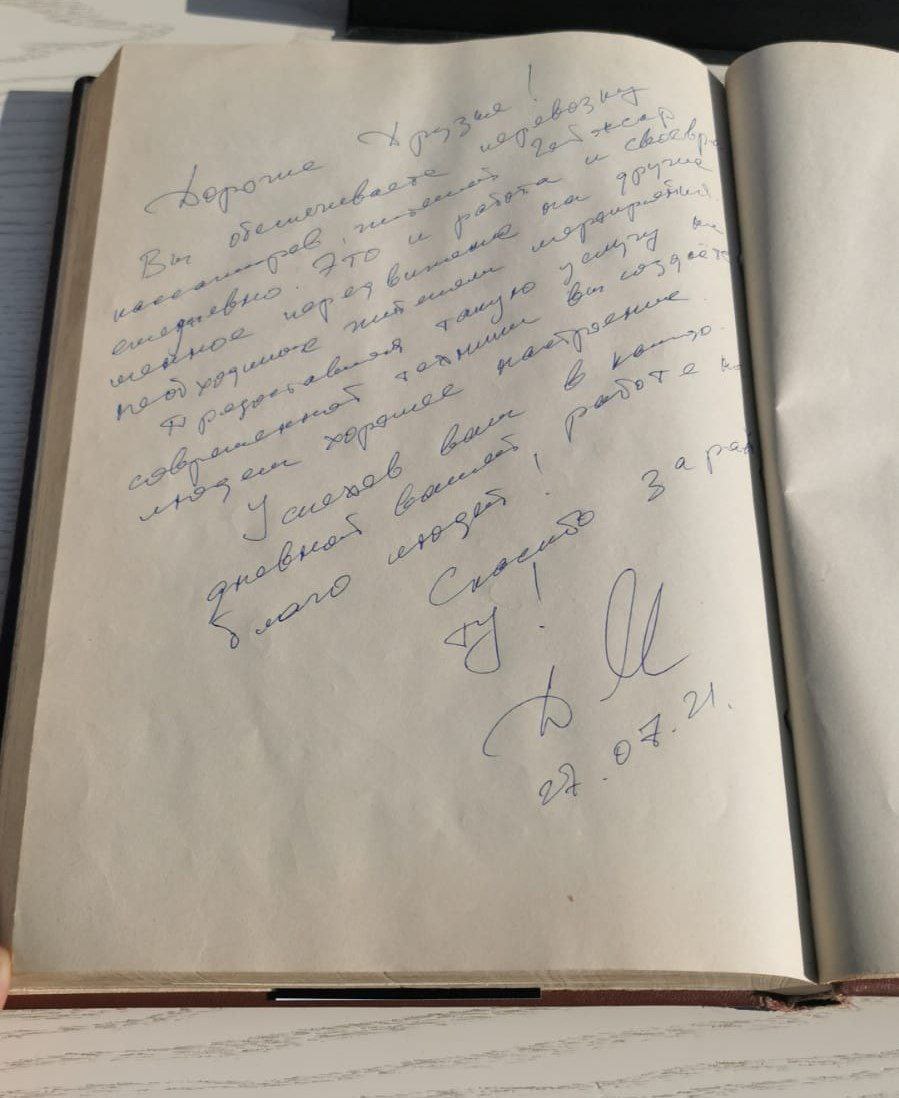 Дорогие Друзья!
Вы обеспечиваете перевозку
пассажиров, жителей Чебоксар
ежедневно. Это и работа и своевре
менное передвижение на другие
необходимые жителям мероприятия.
Предоставляя такую услугу на
современной технике Вы создаёте
людям хорошее настроение.
Успехов вам в каждо
дневной вашей работе на
благо людей!
Спасибо за рабо
ту!
27.07.21.